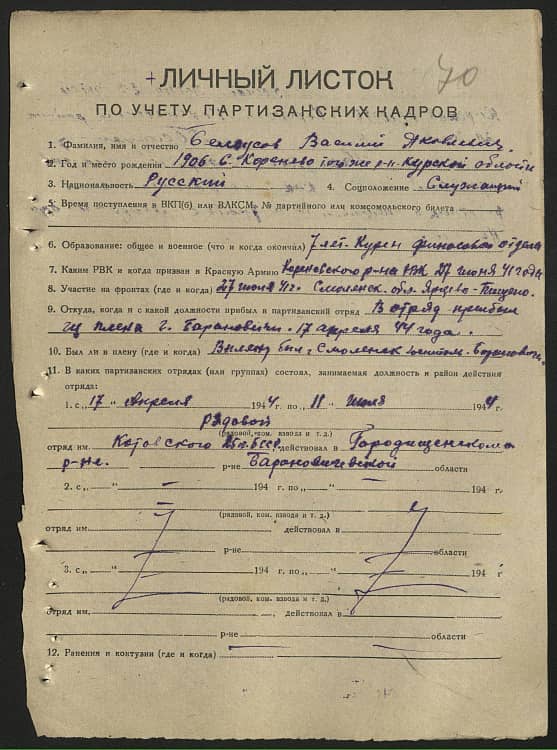 70
+ЛИЧНЫЙ ЛИСТОК
ПО УЧЕТУ ПАРТИЗАНСКИХ КАДРОВ
1. Фамилия, имя и отчество Белоусов Василий Яковлевич
2. Год и место рождения 1906 с. Коренево того же р-н Курской области
3. Национальность Русский 4. Соцположение Служащий
5. Время поступления в ВКП(б) или ВЛКСМ, № партийного или комсомольского билета
6. Образование: общее и военное (что и когда окончил) 7 лет.
7. Каким РВК и когда призван в Красную Армию Кореневского р-на РВК 27 июня 41 года
8. Участие на фронтах (где и когда) 27 июня 41 г. Смоленск. обл. Ярцево-
9. Откуда, когда и с какой должности прибыл в отряд В отряд прибыл
из плена г. Барановичи. 17 апреля 44 года.
10. Был ли в плену (где и когда) В плену был. Смоленск
11. В каких партизанских отрядах (или группах) состоял, занимаемая должность и район действия
отряда:
1. с „17" Апреля 1944 г. по „11" июля 1944
рядовой
(рядовой, ком. взвода и т. д.)
отряд им. Котовского действовал в Городищенском
р-не. р-не Барановичевской области
2. с „ — " 194 г. по „ — " 194 г
(рядовой, ком. взвода и т. д.)
отряд им. действовал в
р-не области
3. с „ " 194 г. по „ " 194 г
(рядовой, ком. взвода и т. д.)
отряд им. , действовал в
р-не области
12. Ранения и контузии (где и когда) —